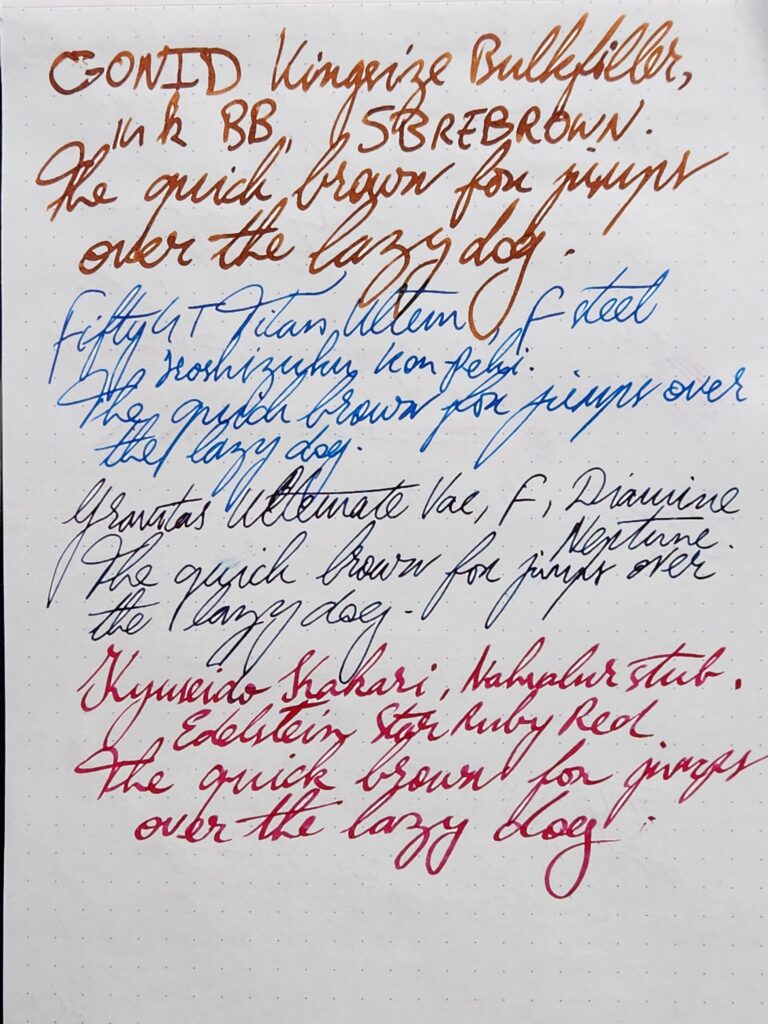 CONID Kingsize Bulkfiller,
ink BB, SBREBROWN.
The quick brown fox jumps
over the lazy dog.
Fifty4T Titan Ultem, F steel
Iroshizuku Kon peki.
The quick brown fox jumps over
the lazy dog.
Gravitas Ultimate Vac, F, Diamine
Neptune.
The quick brown fox jumps over
the lazy dog.
Kyuseido Kakari, stub.
Edelstein Star Ruby Red
The quick brown fox jumps
over the lazy dog.